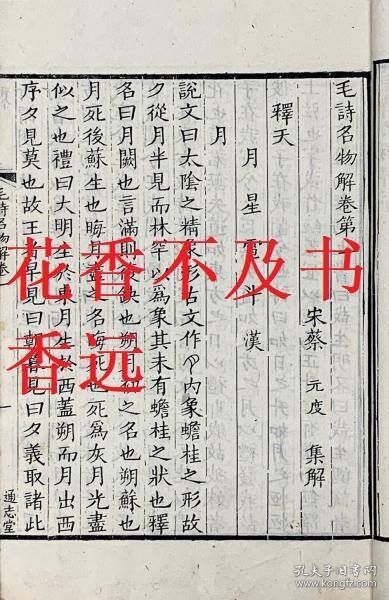 毛詩名物解卷第
宋蔡 元度 集解
釋天
月 星 雷 斗 漢
月
說文曰太陰之精象形古文作內象蟾桂之形故
夕從月半見而林罕以爲象其未有蟾桂之狀也釋
名曰月闕也言滿則缺也朔月初之名也朔蘇也
月死後蘇生也晦月盡之名晦灰也死爲灰月光盡
似之也禮曰大明生於東月生於西蓋朔而月出西
序夕見莫也故王者早見曰朝暮見曰夕義取諸此
毛詩名物解卷
一
通志堂
花香不及书
香远
孔夫子旧书网